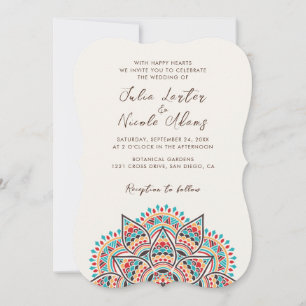 WITH HAPPY HEARTS
WE INVITE YOU TO CELEBRATE
THE WEDDING OF
Julia Larter
&
Nicole Adams
SATURDAY, SEPTEMBER 24, 20XX
AT 2 O'CLOCK IN THE AFTERNOON
BOTANICAL GARDENS
1221 CROSS DRIVE, SAN DIEGO, CA
Reception to follow